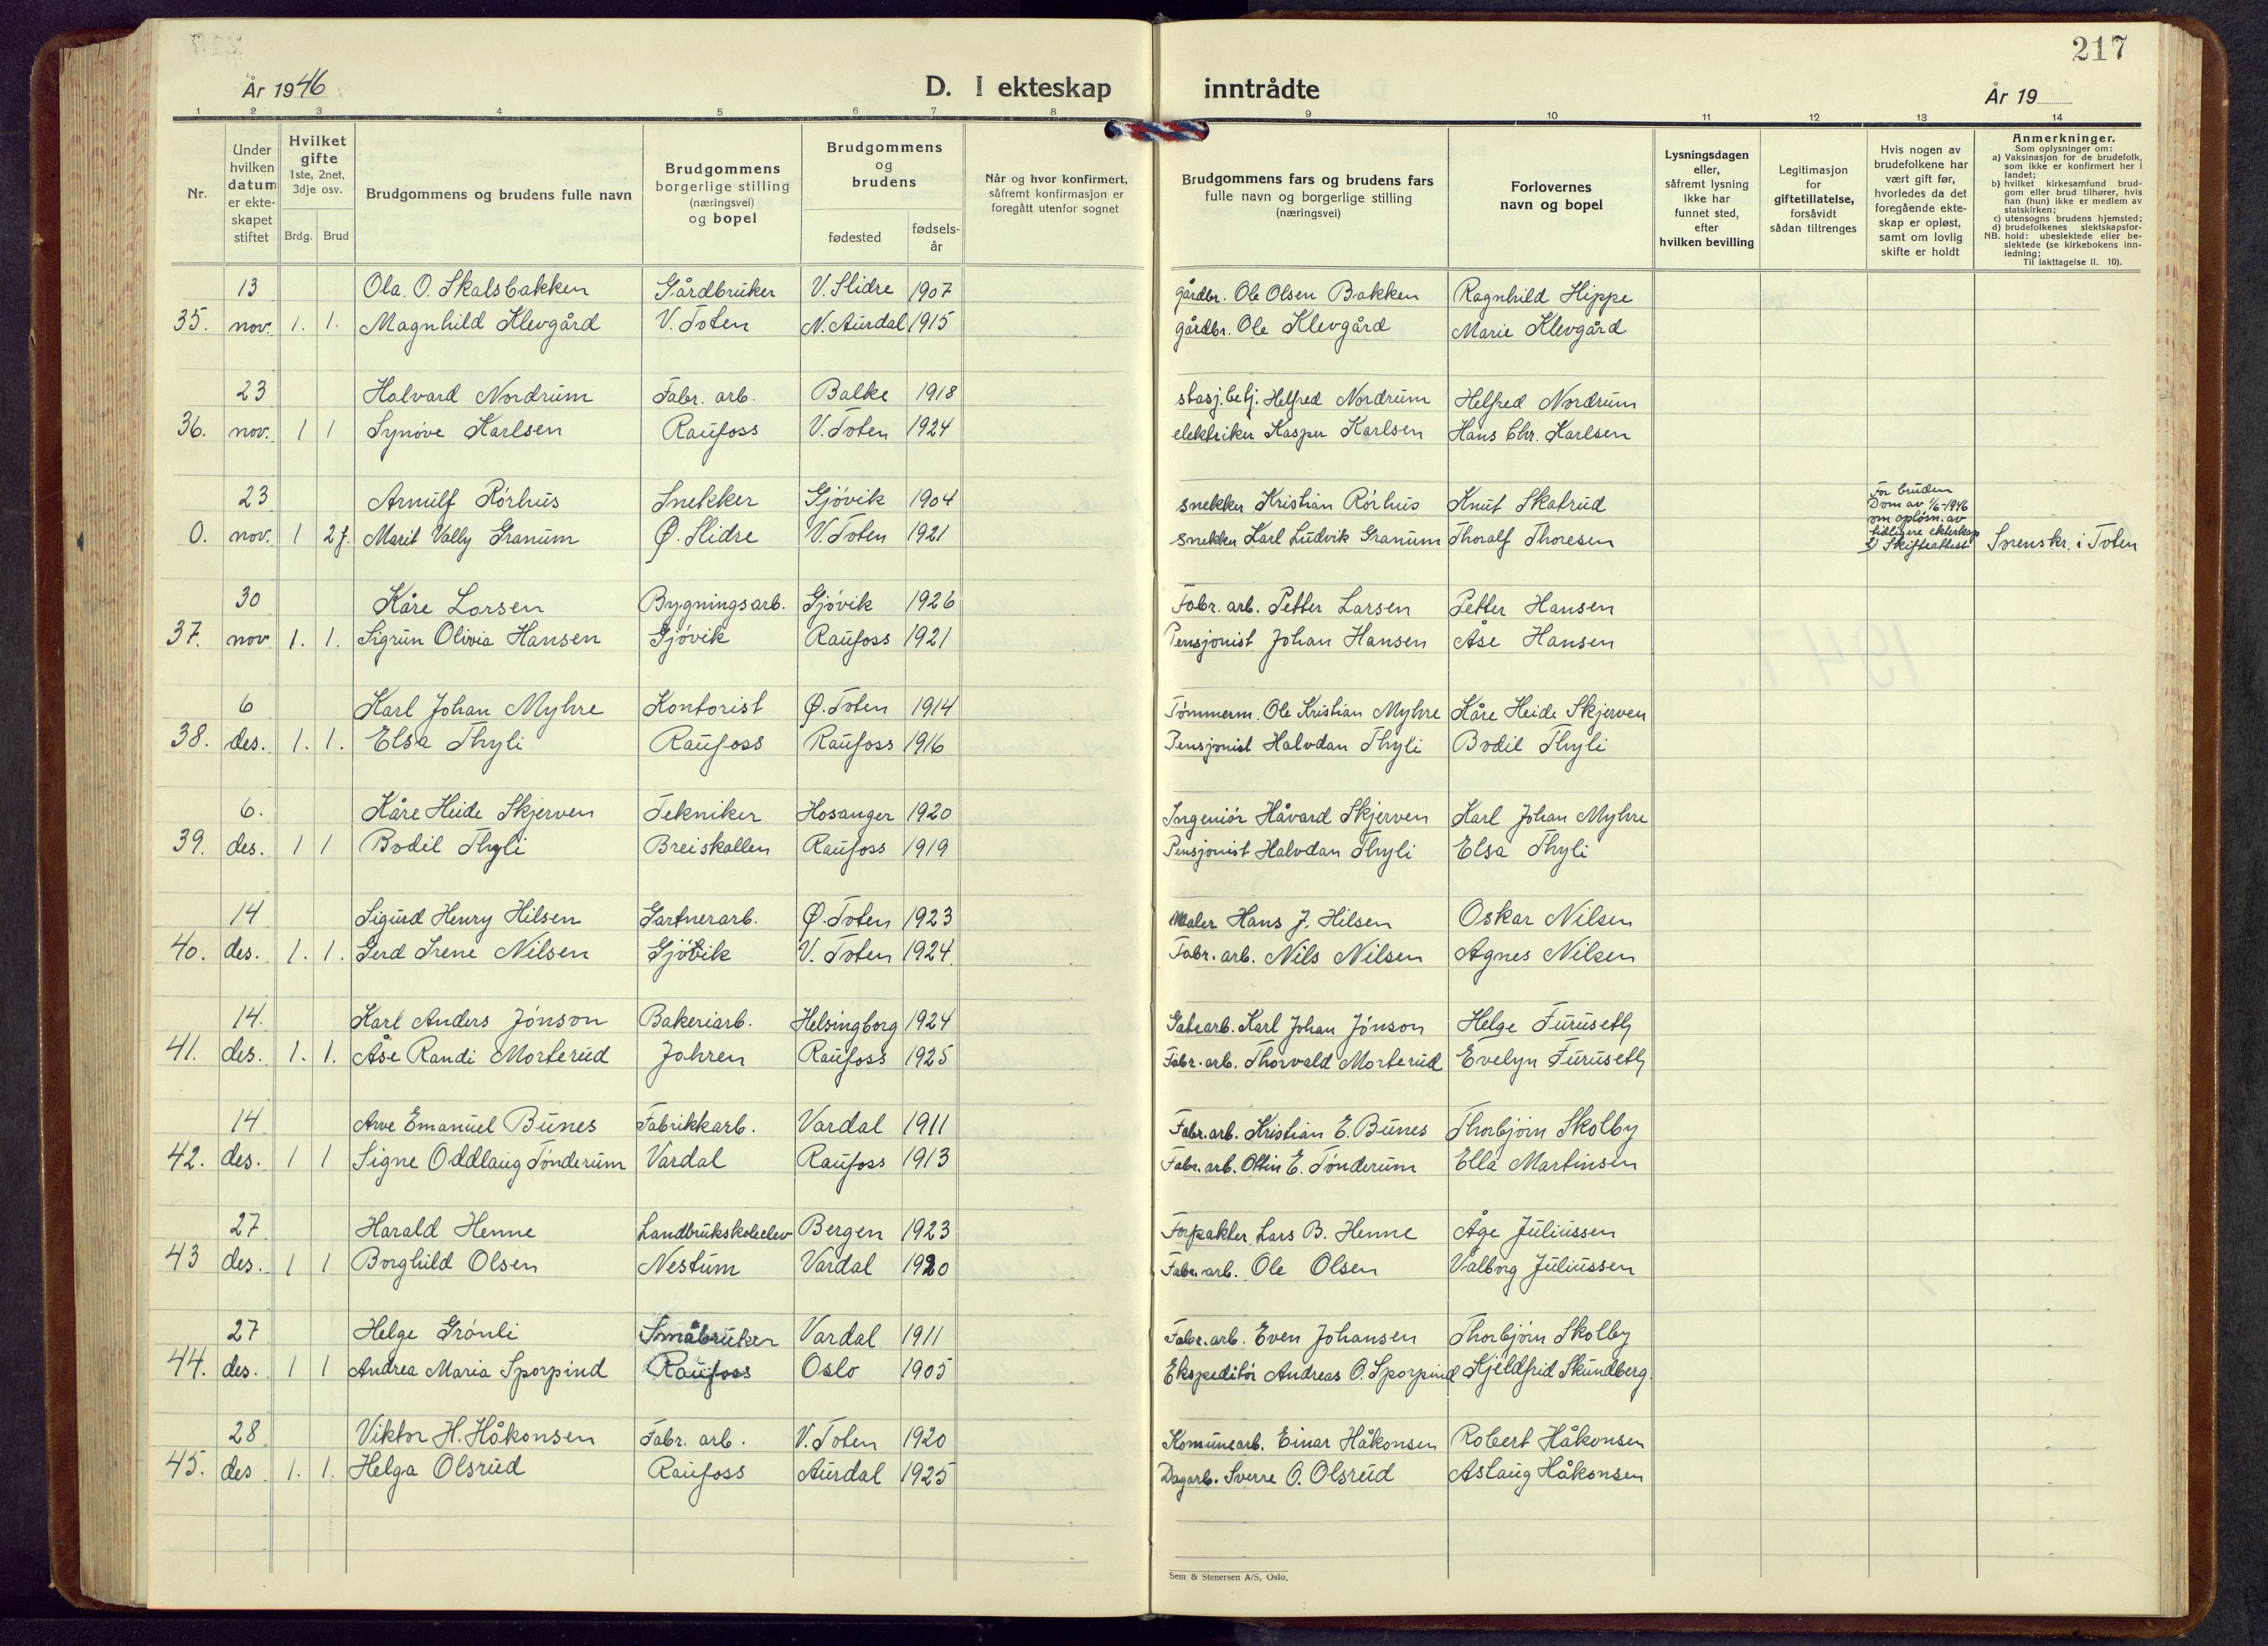 217
År 1946
D. I ekteskap inntrådte
År 19
1 2 3 4 5 6 7 8 9 10 11 12 13 14
Nr.
Under hvilken datum er ekteskapet stiftet
Hvilket gifte 1ste, 2net, 3dje osv.
Brdg. Brud
Brudgommens og brudens fulle navn
Brudgommens borgerlige stilling (næringsvei) og bopel
Brudgommens og brudens
fødested
fødselsår
Når og hvor konfirmert, såfremt konfirmasjon er foregått utenfor sognet
Brudgommens fars og brudens fars fulle navn og borgerlige stilling (næringsvei)
Forlovernes navn og bopel
Lysningsdagen eller, såfremt lysning ikke har funnet sted, efter hvilken bevilling
Legitimasjon for giftetillatelse, forsåvidt sådan tiltrenges
Hvis nogen av brudefolkene har vært gift før, hvorledes da det foregående ekteskap er opløst, samt om lovlig skifte er holdt
Anmerkninger.
Som oplysninger om:
a) Vaksinasjon for de brudefolk, som ikke er konfirmert her i landet;
b) hvilket kirkesamfund brudgom eller brud tilhører, hvis han (hun) ikke er medlem av statskirken;
c) utensogns brudens hjemsted;
d) brudefolkenes slektskapsforhold: ubeslektede eller beslektede (se kirkebokens innledning;
NB. Til iakttagelse II. 10).
13 Ola. O. Skalsbakken Gårdbruker V. Slidre 1907 gårdbr. Ole Olsen Bakken Ragnhild Hippe
35. nov. 1. 1. Magnhild Klevgård V. Toten N. Aurdal 1915 gårdbr. Ole Klevgård Marie Klevgård
23 Halvard Nordrum Fabr. arb. Balke 1918 stasj. betj. Helfred Nordrum Helfred Nordrum
36. nov. 1 1 Synøve Karlsen Raufoss V. Toten 1924 elektriker Kasper Karlsen Hans Chr. Karlsen
23 Arnulf Rørhus Snekker Gjøvik 1904 snekker Kristian Rørhus Knut Skatrud
0. nov. 1 2 f. Marit Vally Granum Ø. Slidre V. Toten 1921 snekker Karl Ludvik Granum Thoralf Thoresen
For bruden
Dom av 1/6-1946
om opløsn. av
tidligere ekteskap
Skifteattest Sorenskr. i Toten
30 Kåre Larsen Bygningsarb. Gjøvik 1926 Fabr. arb. Petter Larsen Petter Hansen
37. nov 1. 1. Sigrun Olivia Hansen Gjøvik Raufoss 1921 Pensjonist Johan Hansen Åse Hansen
6 Karl Johan Myhre Kontorist Ø. Toten 1914 Tømmerm. Ole Kristian Myhre Kåre Heide Skjerven
38. des. 1. 1. Elsa Thyli Raufoss Raufoss 1916 Pensjonist Halvdan Thyli Bodil Thyli
6. Kåre Heide Skjerven Tekniker Hosanger 1920 Ingeniør Håvard Skjerven Karl Johan Myhre
39. des. 1 1 Bodil Thyli Breiskallen Raufoss 1919 Pensjonist Halvdan Thyli Elsa Thyli
14 Sigurd Henry Hilsen Gartnerarb. Ø. Toten 1923 Maler Hans J. Hilsen Oskar Nilsen
40. des. 1. 1. Gerd Irene Nilsen Gjøvik V. Toten 1924. Fabr. arb. Nils Nilsen Agnes Nilsen
14. Karl Anders Jönson Bakeriarb. Helsingborg 1924 Gatearb. Karl Johan Jönson Helge Furuseth
41. des. 1. 1. Åse Randi Morterud Jahren Raufoss 1925 Fabr. arb. Thorvald Morterud Evelyn Furuseth
14 Arve Emanuel Bunes Fabrikkarb. Vardal 1911 Fabr. arb. Kristian E. Bunes Thorbjørn Skolby
42. des. 1 1 Signe Oddlaug Tønderum Vardal Raufoss 1913 Fabr. arb. Ottin E. Tønderum Ella Martinsen
27 Harald Henne Landbrukskoleelev Bergen 1923 Forpakter Lars B. Henne Åge Juliussen
43 des. 1 1 Borghild Olsen Nestum Vardal 1920 Fabr. arb. Ole Olsen Valborg Juliussen
27 Helge Grønli Småbruker Vardal 1911 Fabr. arb. Even Johansen Thorbjørn Skolby
44. des. 1 1 Andrea Maria Sporpind Raufoss Oslo 1905 Ekspeditør Andreas O. Sporpind Kjeldfrid Skundberg.
28 Viktor H. Håkonsen Fabr. arb. V. Toten 1920 Komunearb. Einar Håkonsen Robert Håkonsen
45. des 1. 1. Helga Olsrud Raufoss Aurdal 1925 Dagarb. Sverre O. Olsrud Aslaug Håkonsen
Sem & Stenersen A/S, Oslo.